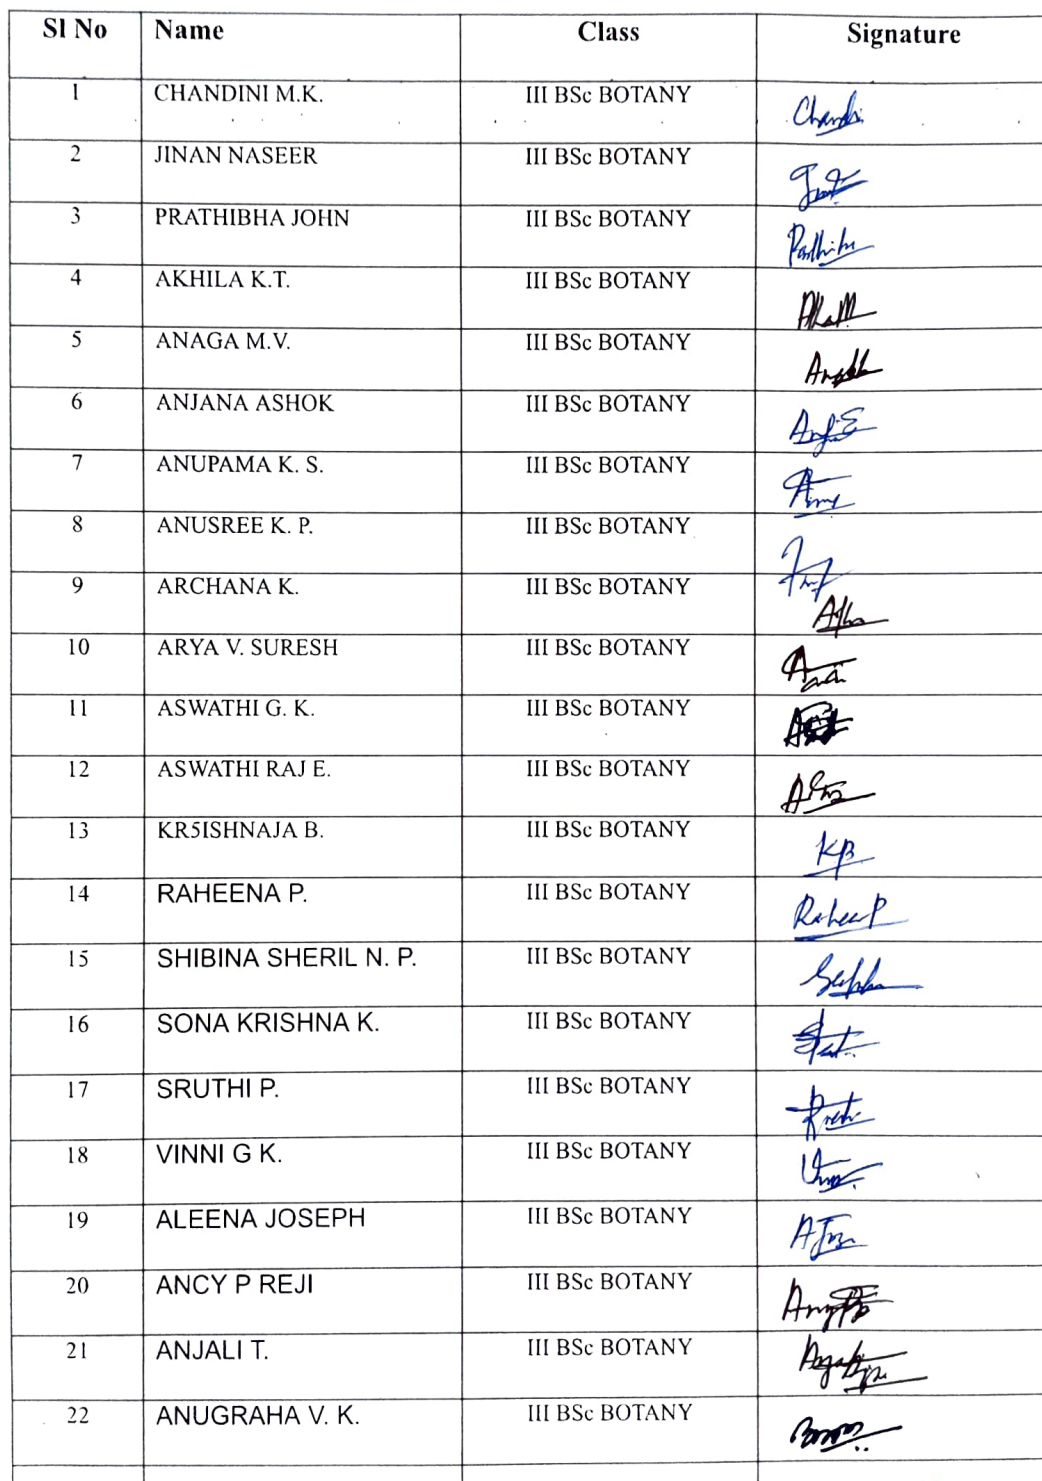 Sl No Name Class Signature
1 CHANDINI M.K. III BSc BOTANY
2 JINAN NASEER III BSc BOTANY
3 PRATHIBHA JOHN III BSc BOTANY
4 AKHILA K.T. III BSc BOTANY
5 ANAGA M.V. III BSc BOTANY
6 ANJANA ASHOK III BSc BOTANY
7 ANUPAMA K. S. III BSc BOTANY
8 ANUSREE K. P. III BSc BOTANY
9 ARCHANA K. III BSc BOTANY
10 ARYA V. SURESH III BSc BOTANY
11 ASWATHI G. K. III BSc BOTANY
12 ASWATHI RAJ E. III BSc BOTANY
13 KR5ISHNAJA B. III BSc BOTANY KB
14 RAHEENA P. III BSc BOTANY
15 SHIBINA SHERIL N. P. III BSc BOTANY
16 SONA KRISHNA K. III BSc BOTANY
17 SRUTHI P. III BSc BOTANY
18 VINNI G K. III BSc BOTANY
19 ALEENA JOSEPH III BSc BOTANY
20 ANCY P REJI III BSc BOTANY
21 ANJALI T. III BSc BOTANY
22 ANUGRAHA V. K. III BSc BOTANY